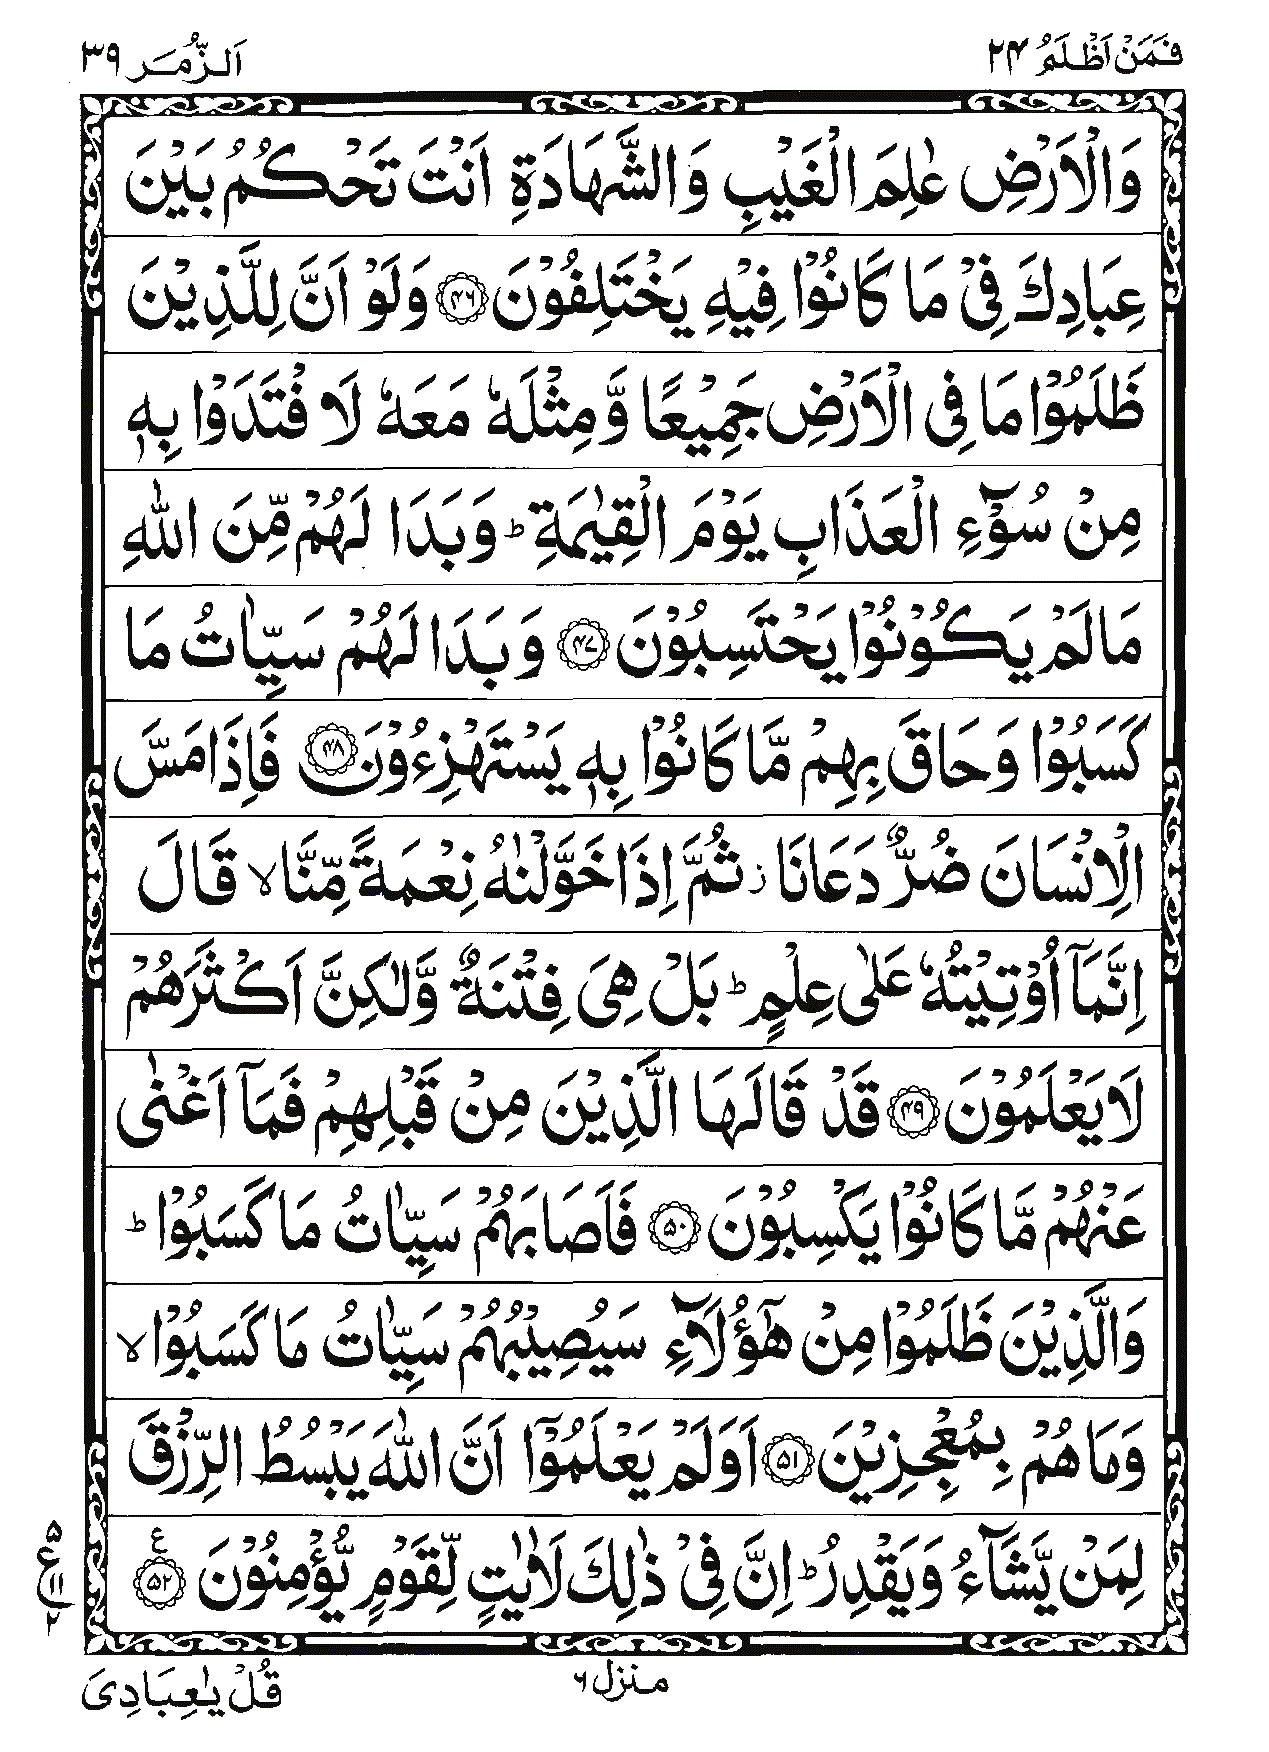 فَمَنْ اَظْلَمُ ۲۴ اَلزُّمَر ۳۹
وَالْاَرْضِ عٰلِمَ الْغَيْبِ وَالشَّهَادَةِ اَنْتَ تَحْكُمُ بَيْنَ
عِبَادِكَ فِيْ مَا كَانُوْا فِيْهِ يَخْتَلِفُوْنَ ﴿۴۶﴾ وَلَوْ اَنَّ لِلَّذِيْنَ
ظَلَمُوْا مَا فِي الْاَرْضِ جَمِيْعًا وَّمِثْلَهٗ مَعَهٗ لَا فْتَدَوْا بِهٖ
مِنْ سُوْٓءِ الْعَذَابِ يَوْمَ الْقِيٰمَةِ ؕ وَبَدَا لَهُمْ مِّنَ اللّٰهِ
مَا لَمْ يَكُوْنُوْا يَحْتَسِبُوْنَ ﴿۴۷﴾ وَبَدَا لَهُمْ سَيِّاٰتُ مَا
كَسَبُوْا وَحَاقَ بِهِمْ مَّا كَانُوْا بِهٖ يَسْتَهْزِءُوْنَ ﴿۴۸﴾ فَاِذَا مَسَّ
الْاِنْسَانَ ضُرٌّ دَعَانَا ز ثُمَّ اِذَا خَوَّلْنٰهُ نِعْمَةً مِّنَّا ۙ قَالَ
اِنَّمَآ اُوْتِيْتُهٗ عَلٰى عِلْمٍ ؕ بَلْ هِيَ فِتْنَةٌ وَّلٰكِنَّ اَكْثَرَهُمْ
لَا يَعْلَمُوْنَ ﴿۴۹﴾ قَدْ قَالَهَا الَّذِيْنَ مِنْ قَبْلِهِمْ فَمَآ اَغْنٰى
عَنْهُمْ مَّا كَانُوْا يَكْسِبُوْنَ ﴿۵۰﴾ فَاَصَابَهُمْ سَيِّاٰتُ مَا كَسَبُوْا ؕ
وَالَّذِيْنَ ظَلَمُوْا مِنْ هٰٓؤُلَآءِ سَيُصِيْبُهُمْ سَيِّاٰتُ مَا كَسَبُوْا ۙ
وَمَا هُمْ بِمُعْجِزِيْنَ ﴿۵۱﴾ اَوَلَمْ يَعْلَمُوْٓا اَنَّ اللّٰهَ يَبْسُطُ الرِّزْقَ
لِمَنْ يَّشَآءُ وَيَقْدِرُ ؕ اِنَّ فِيْ ذٰلِكَ لَاٰيٰتٍ لِّقَوْمٍ يُّؤْمِنُوْنَ ﴿۵۲﴾ ع
۵
ع ۱۱
۲
منزل ۶
قُلْ يٰعِبَادِيَ